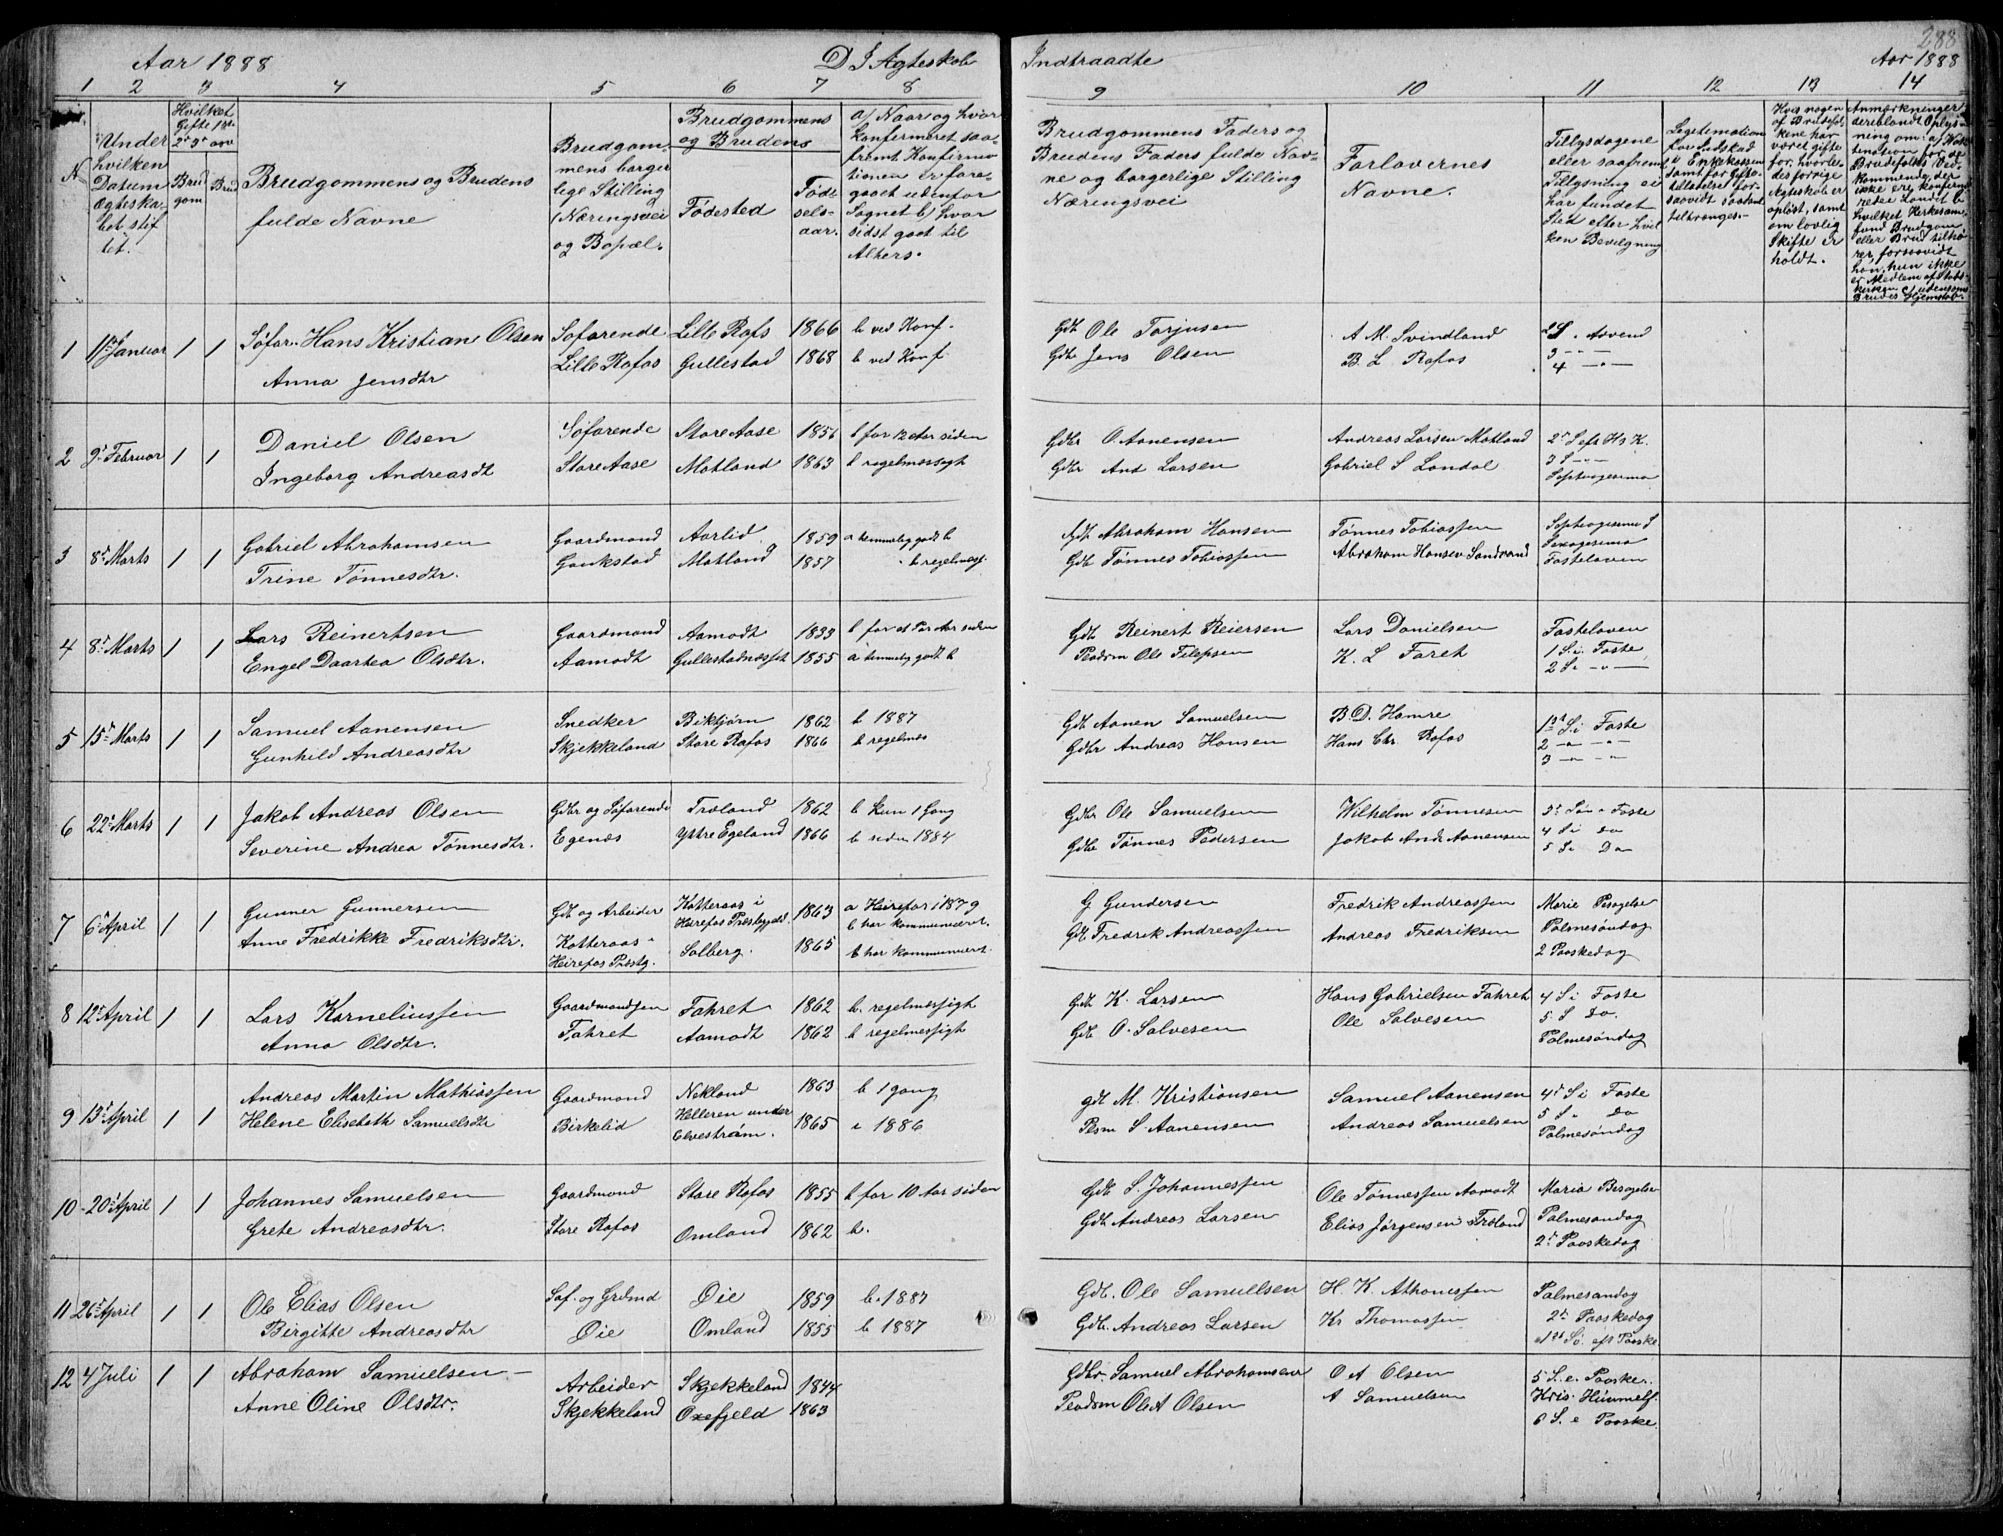 288
Aar 1888
D I Ægteskab
Indtraadte
Aar 1888
1 2 3 4 5 6 7 8 9 10 11 12 13 14
N
Under hvilken Datum Ægteskabet stiftet.
Hvilket Gifte 1ste 2det 3die
Brudgom
Brud
Brudgommens og Brudens fulde Navne
Brudgommens borgerlige Stilling (Næringsvei og Bopæl.
Brudgommens og Brudens
Fødested
Fødselsaar.
a) Naar og hvor konfirmeret saafremt Konfirmationen er foregaaet udenfor Sognet b) hvor sidst gaaet til Alters.
Brudgommens Faders og Brudens Faders fulde Navne og borgerlige Stilling Næringsvei
Forlovernes Navne.
Tillysdagene eller saafremt Tillysning ei har fundet Sted efter hvilken Bevilgning
Legitimation for Ludskad i Enkekassen samt for Giftetilladelse forsaavidt saadan tiltrænges.
Hvis nogen af Brudefolkene har været gifte før, hvorledes forrige Ægteskab er opløst, samt om lovlig Skifte er holdt.
Anmærkninger
1 11te Januar 1 1 Søfar. Hans Kristian Olsen Søfarende Lille Røfs 1866 b ved Konf. Gdb Ole Tarjusen A M. Svindland 2 S. Advend
Anna Jensdtr Lille Rafos Gullestad 1868 b ved Konf. Gdb Jens Olsen B. L Rafos 3 — 4 —
2 9' Februar 1 1 Daniel Olsen Søfarende Store Aase 1856 b for 12 Aar siden Gdbr O. Aanensen Andreas Larsen Motland 2' S eft H3 K.
Ingeborg Andreasdt Store Aase Motland 1863 b regelmæssigt Gdbr And Larsen Gabriel S Londal 3 S — Septuagesima
3 8' Marts 1 1 Gabriel Abrahamsen Gaardmand Aarlid 1859 a temmelig godt b Gdb Abraham Hansen Tønnes Tobiassen Septuagesima S
Trine Tønnesdtr. Gaukstad Motland 1857 b regelmæs. Gdb Tønnes Tobiassen Abraham Hansen Sandvand Sexagesima Fastelaven
4 8' Marts 1 1 Lars Reinertsen Gaardmand Aamodt 1833 b for et Par Aar siden Gdb Reinert Reiersen Lars Danielsen Fastelaven
Engel Daartea Olsdtr. Aamodt Gullestadnæsset 1855 a temmelig godt b Pladsm Ole Filipsen K. L Faret 1 S. i. Faste 2 S i —
5 15' Marts 1 1 Samuel Aanensen Snedker Birktjørn 1862 b 1887 Gdb Aanen Samuelsen B. D. Hamre 1st S. i Faste
Gunhild Andreasdtr Skjekkeland Store Rafos 1866 b regelmæs Gdbr Andreas Hansen Hans Chr. Rafos 2 — 3 —
6 22' Marts 1 1 Jakob Andreas Olsen Gdbr og Søfarende Træland 1862 b kun 1 Gang Gdbr Ole Samuelsen Wilhelm Tønnesen 3' Søn i Faste
Severine Andrea Tønnesdtr. Egenæs Ystre Egeland 1866 b siden 1884 Gdbr Tønnes Pedersen Jakob Andr Aanensen 4 S i do 5 S i Do
7 6' April 1 1 Gunner Gunnersen Gdb og Arbeider Katteraas i Herefos Præstegjeld 1863 a Heirefos i 1879 b har kommuniceret. G Gundersen Fredrik Andreassen Marie Besøgelse
Anne Fredrikke Fredriksdtr. Katteraas i Heirefos Præstg. Solberg. 1865 b har kommuniceret Gdb Fredrik Andreassen Andreas Fredriksen Palmesøndag 2 Paaskedag
8 12' April 1 1 Lars Korneliussen Gaardmandssøn Fahret 1862 b. regelmæssigt Gdb K. Larsen Hans Gabrielsen Fahret 4 S i Faste
Anna Olsdtr. Fahret Aamodt 1862 b regelmæssigt Gdb O. Salvesen Ole Salvesen 5. S do. Palmesøndag
9 13' April 1 1 Andreas Martin Mathiassen Gaardmand Nekland 1863 b 1 gang gdb M. Kristiansen Samuel Aanensen 4' S i Faste
Helene Elisabeth Samuelsdtr Birkelid Helleren under Elvestrøm. 1865 1886 Plsm S. Aanensen Andreas Samuelsen 5 S. do Palmesøndag
10 20' April 1 1 Johannes Samuelsen Gaardmand Store Rafos 1855 b for 10 Aar siden Gdb S. Johannessen Ole Tønnessen Aamodt Maria Besøgelse
Grete Andreasdtr. Store Rafos Omland 1862 b. Gdb Andreas Larsen Elias Jørgensen Træland Palmesøndag 2' Paaskedag
11 26' April 1 1 Ole Elias Olsen Søf. og Grdmd Øie 1859 b. 1887 Gdb. Ole Samuelsen H. K. Athonissen Palmesøndag
Birgitte Andreasdtr Øie Omland 1855 b 1887 Gdb. Andreas Larsen Kr Thomassen 2' Paaskedag 1st Sø. eft Paaske.
12 4 Juli 1 1 Abraham Samuelsen Arbeider Skjekkeland 1844 Gdbr. Samuel Abrahamsen O A Olsen 5 S. e. Paaske.
Anne Oline Olsdtr. Skjekkeland Oxefjeld 1863 Pladsm Ole A Olsen A Samuelsen Kris. Himmelf. 6 S. e Paaske